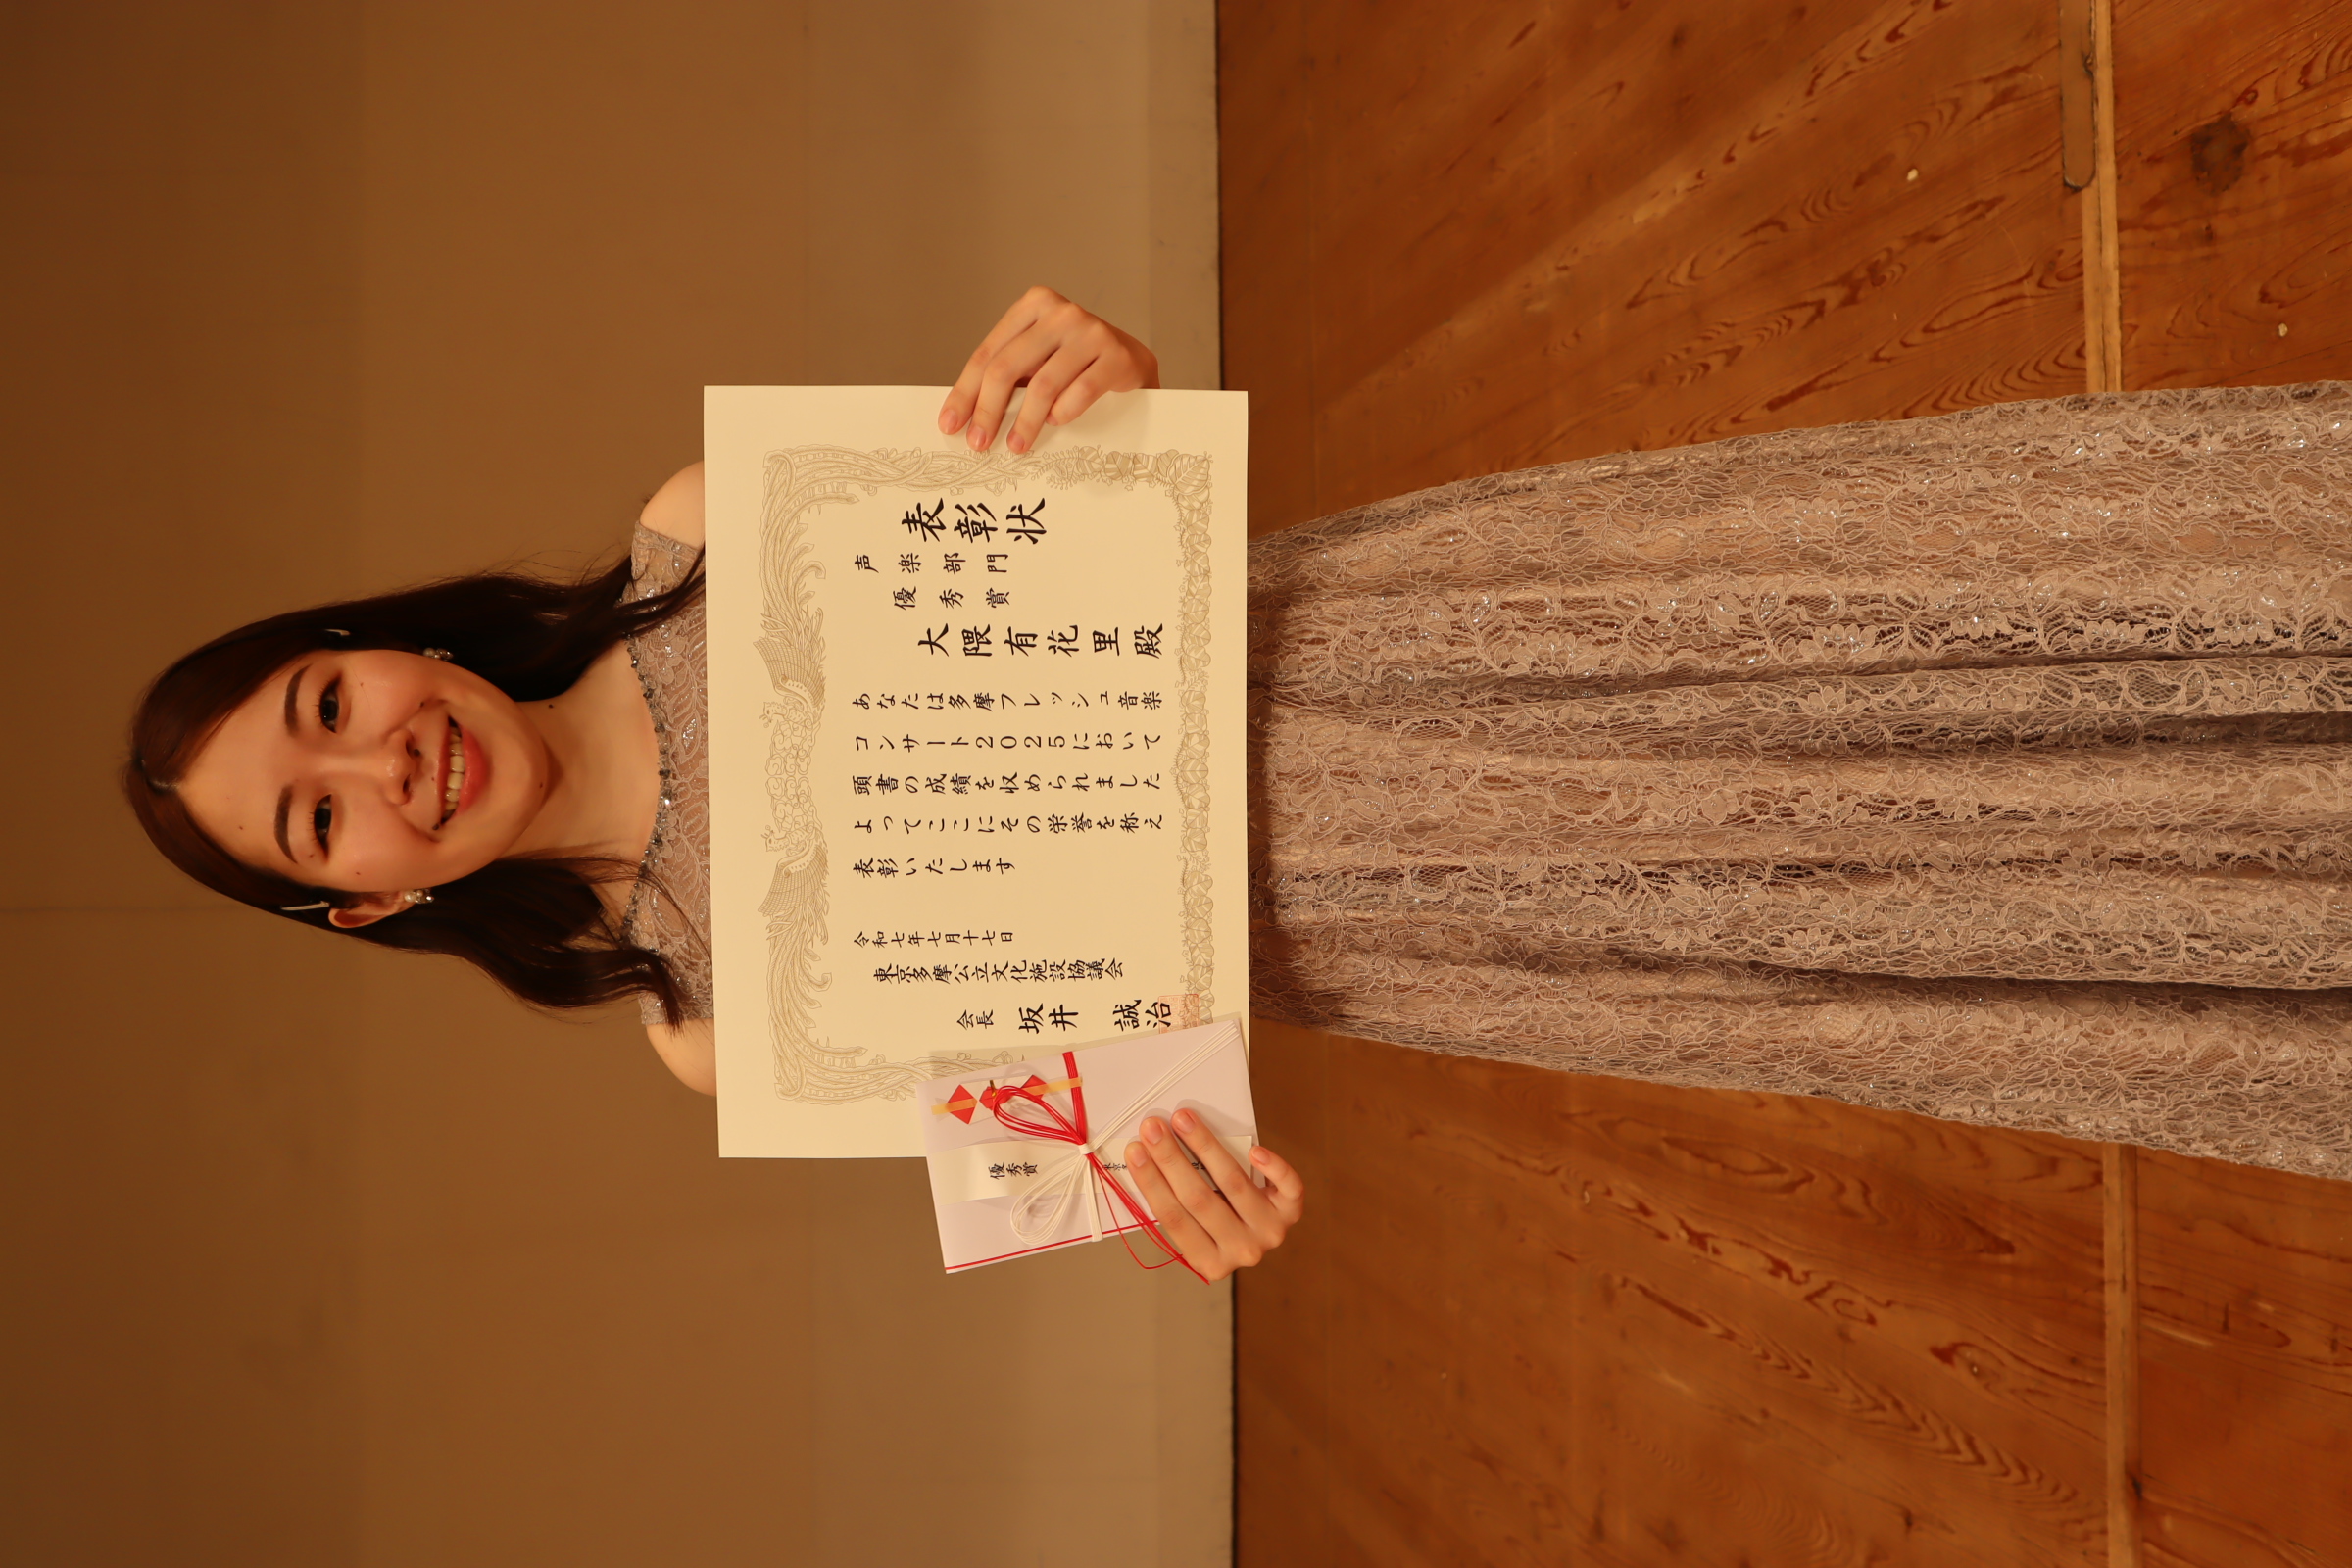 表彰状
声楽部門
優秀賞
大隈有花里殿
あなたは多摩フレッシュ音楽
コンサート2025において
頭書の成績を収められました
よってここにその栄誉を称え
表彰いたします
令和七年七月十七日
東京多摩公立文化施設協議会
会長 坂井 誠治
優秀賞
東京